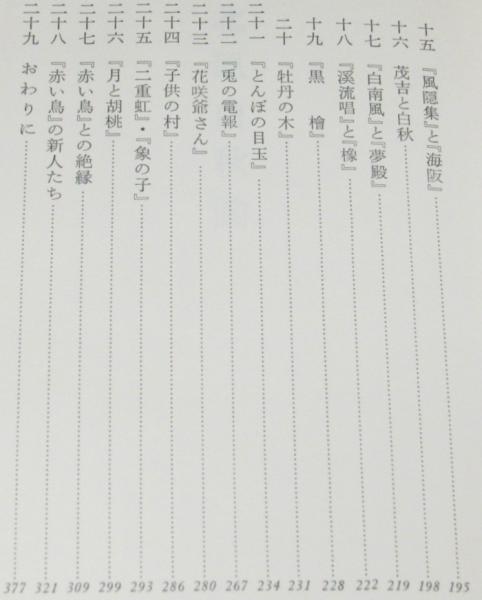 十五 『風隠集』と『海阪』 195
十六 茂吉と白秋 198
十七 『白南風』と『夢殿』 219
十八 『渓流唱』と『橡』 222
十九 『黒 檜』 228
二十 『牡丹の木』 231
二十一 『とんぼの目玉』 234
二十二 『兎の電報』 267
二十三 『花咲爺さん』 280
二十四 『子供の村』 286
二十五 『二重虹』・『象の子』 293
二十六 『月と胡桃』 299
二十七 『赤い鳥』との絶縁 309
二十八 『赤い鳥』の新人たち 321
二十九 おわりに 377